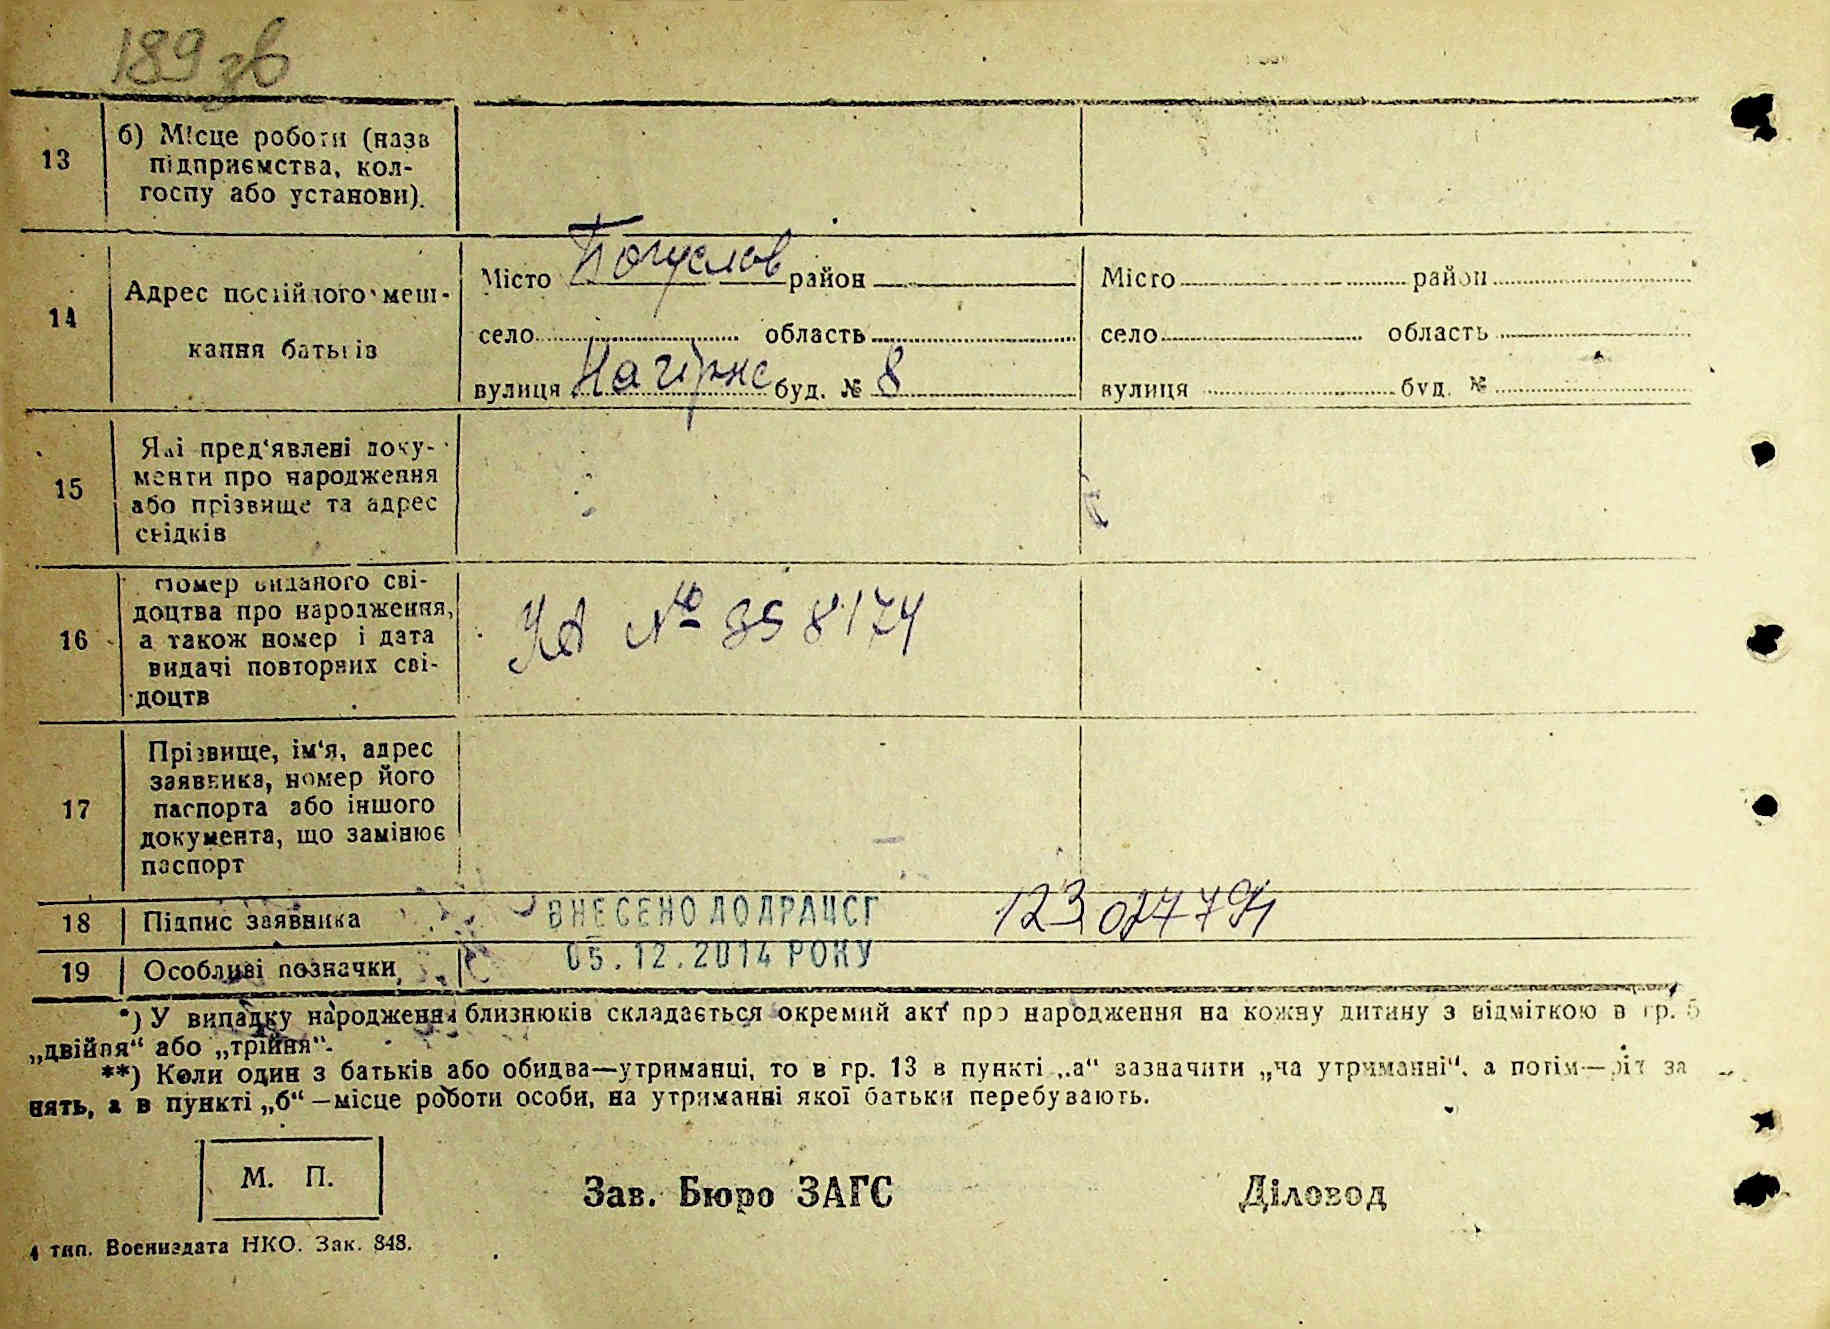 189 зв
13
б) Місце роботи (назв
підприємства, кол-
госпу або установи).
14
Адрес постійного меш-
кання батьків
Місто Богуслов район
село область
вулиця Нагірне буд. № 8
Місто район
село область
вулиця буд. №
15
Які пред‘явлені доку-
менти про народження
або прізвище та адрес
свідків
16
Номер виданого сві-
доцтва про народження,
а також номер і дата
видачі повторних сві-
доцтв
УА № 358174
17
Прізвище, ім‘я, адрес
заявника, номер його
паспорта або іншого
документа, що замінює
паспорт
18 Підпис заявника
ВНЕСЕНО ДО ДРАЦСГ
05.12.2014 РОКУ
19 Особливі позначки
*) У випадку народження близнюків складається окремий акт про народження на кожну дитину з відміткою в гр. 5
„двійня“ або „трійня“.
**) Коли один з батьків або обидва—утриманці, то в гр. 13 в пункті „а“ зазначити „на утриманні“, а потім—рід за
нять, а в пункті „б“—місце роботи особи, на утриманні якої батьки перебувають.
М. П.
Зав. Бюро ЗАГС
Діловод
4 тип. Воениздата НКО. Зак. 848.